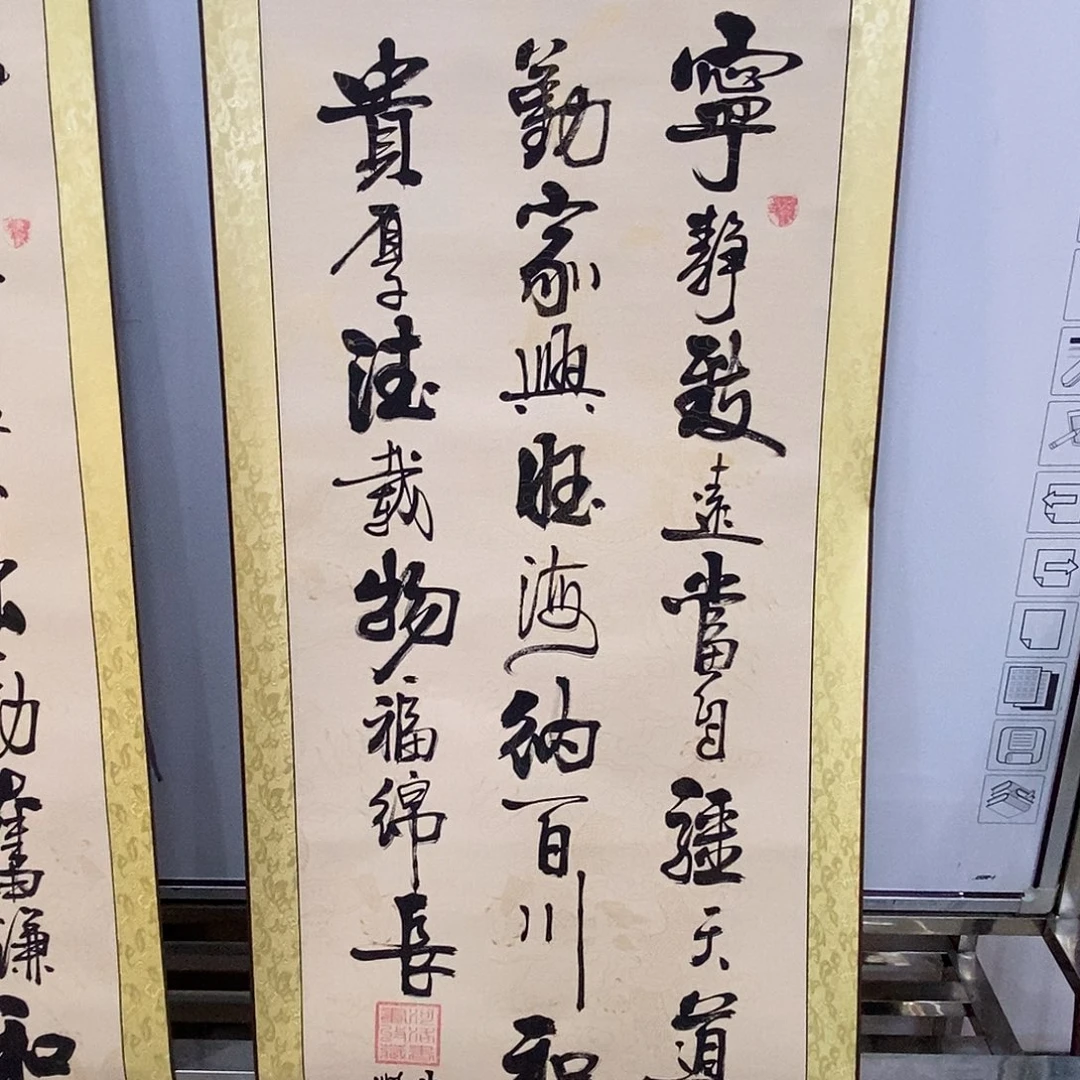 寧靜致遠當自彊天道
勤家興旺海納百川和
貴厚德載物福綿長
勤奮謙和